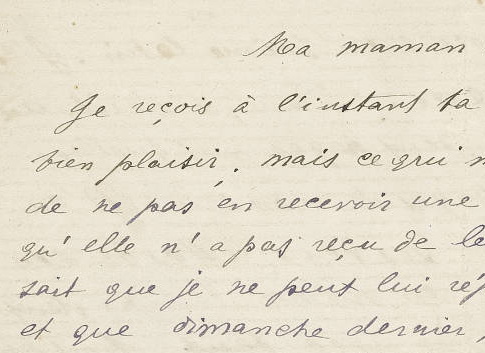 Ma maman
Je reçois à l'instant ta
bien plaisir, mais ce qui
de ne pas en recevoir une
qu'elle n'a pas reçu de
sait que je ne peut lui
et que dimanche dernier,